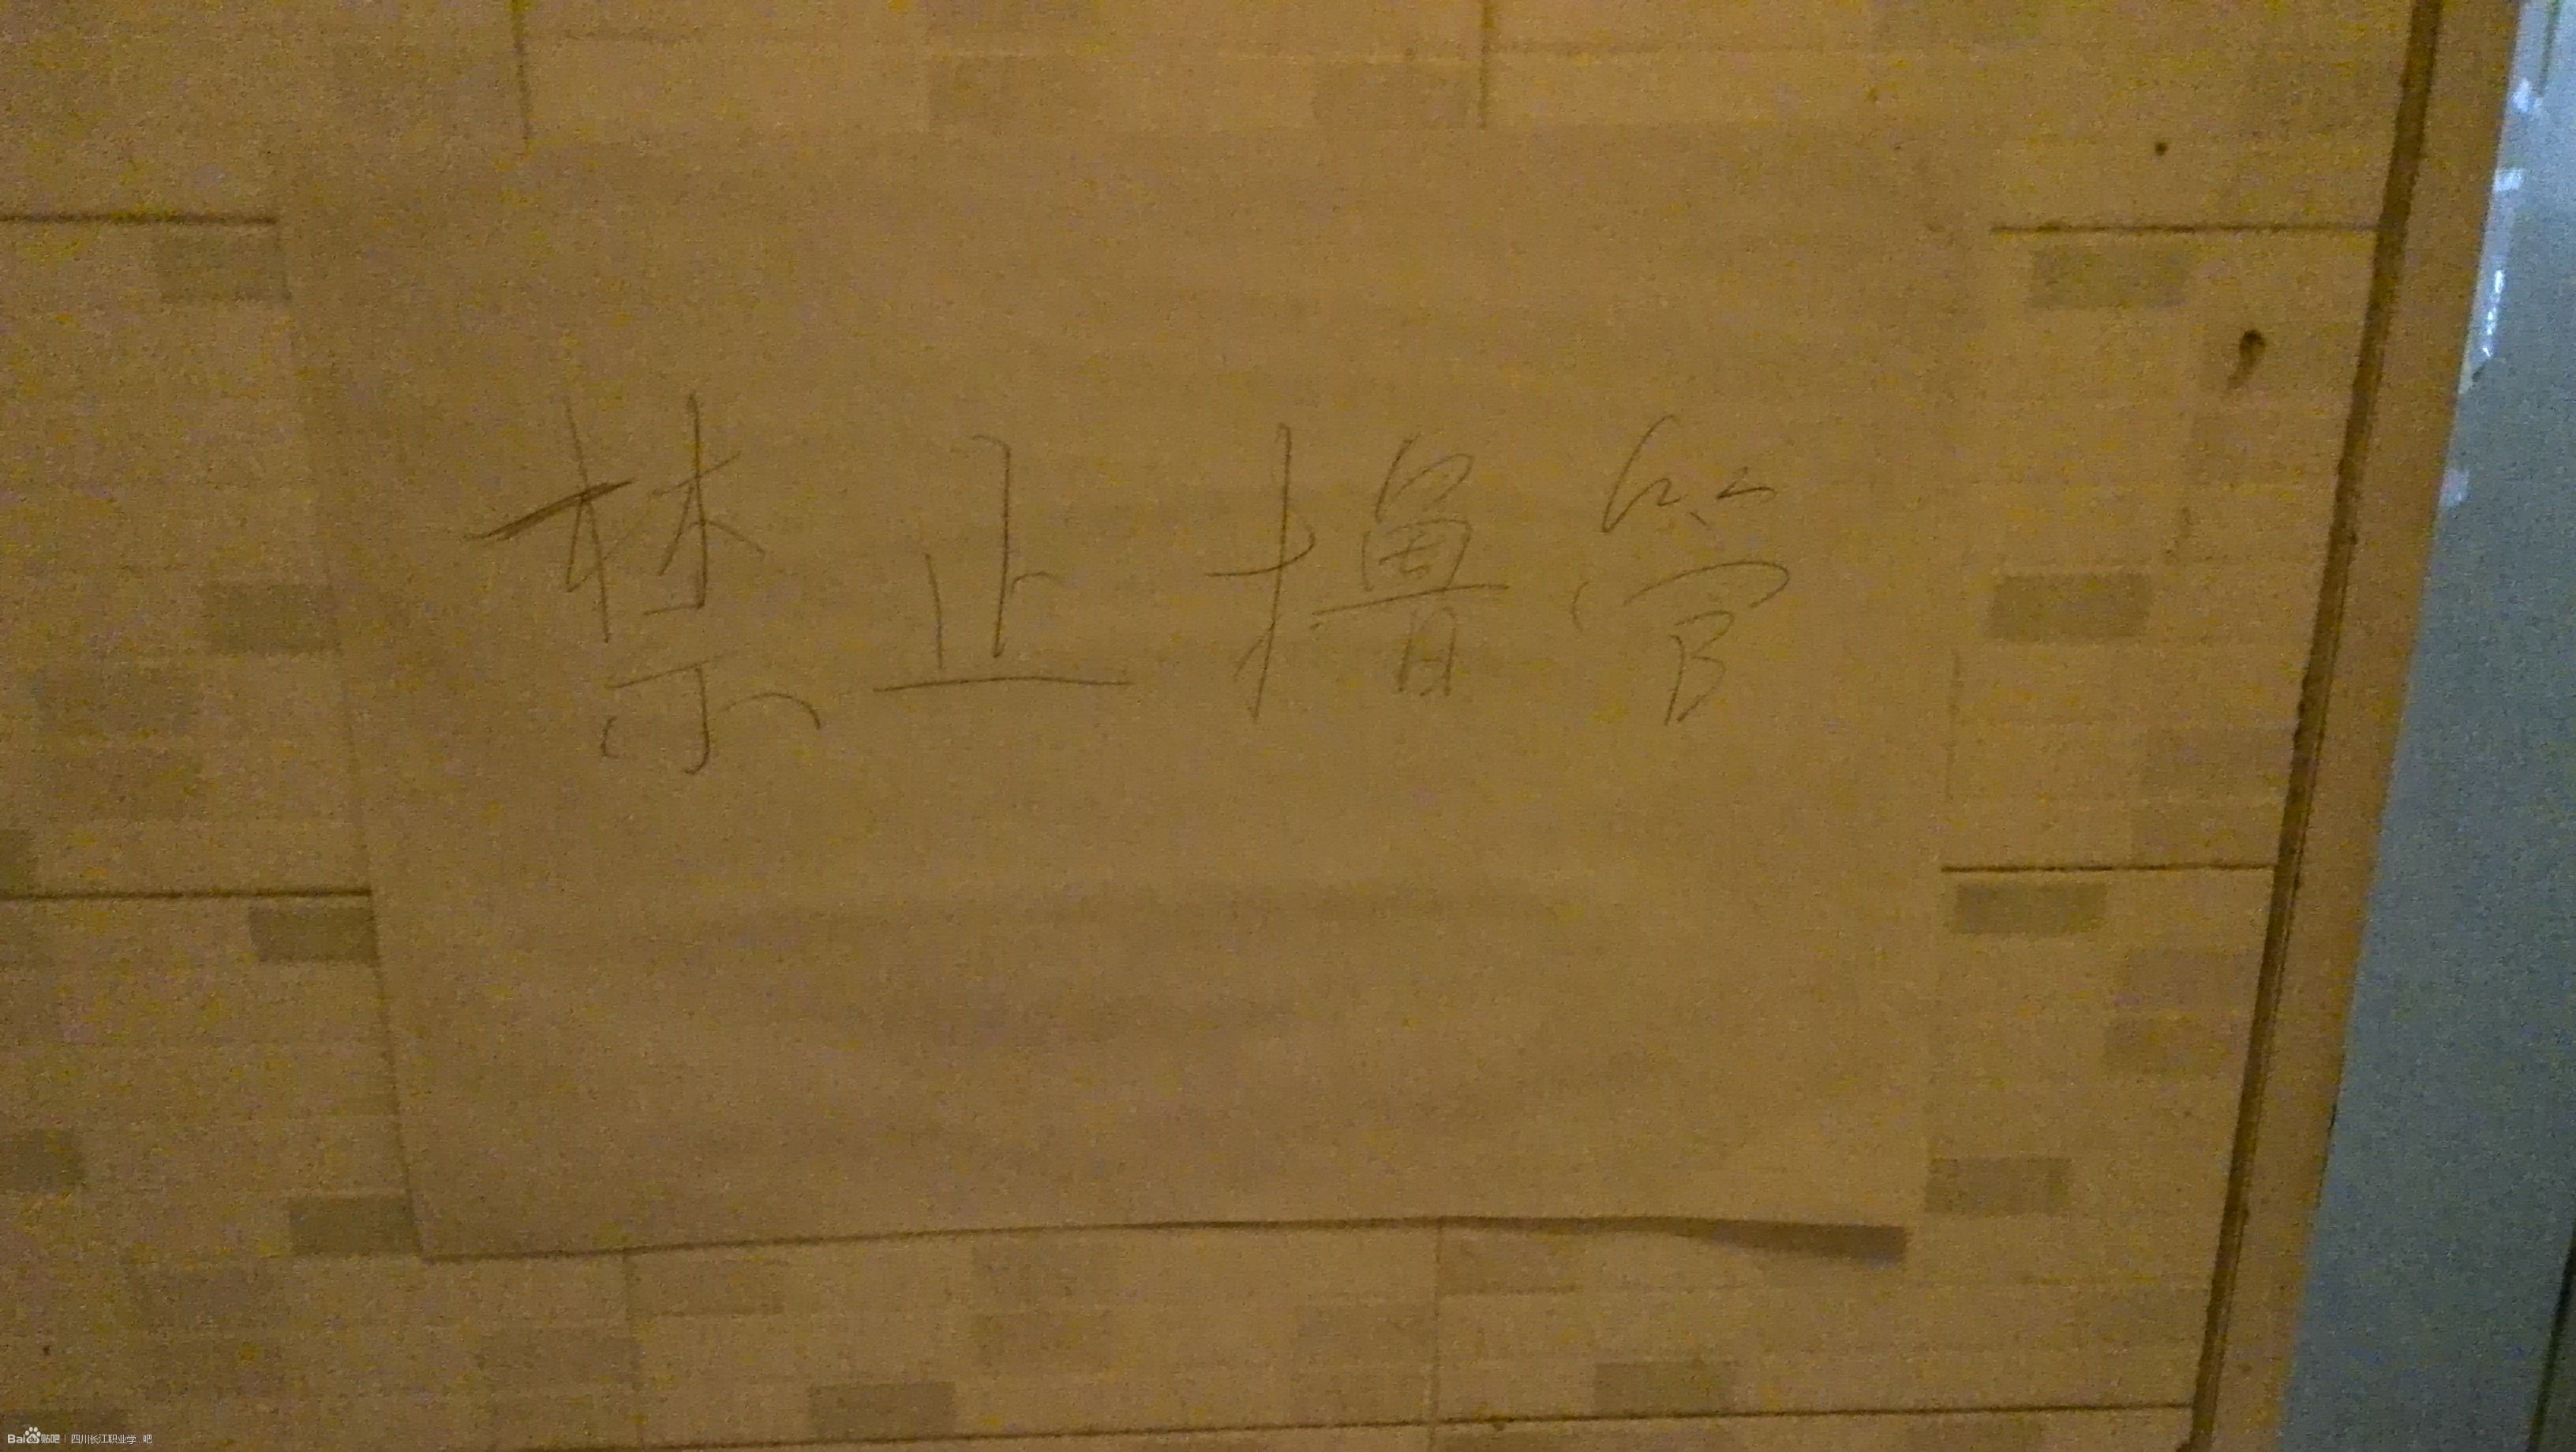 禁止撸管
Bai贴吧 | 四川长江职业学...吧